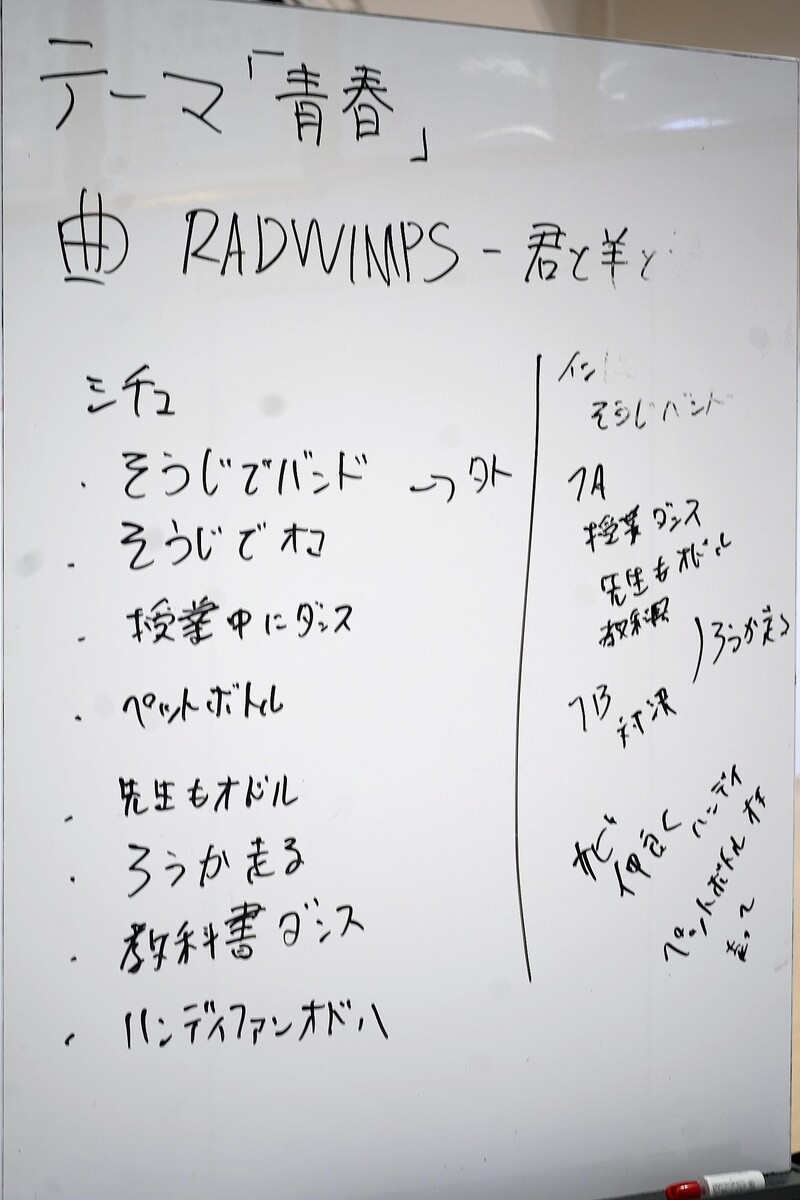 テーマ「青春」
曲 RADWIMPS - 君と羊と
シチュ
・そうじでバンド → 外
・そうじでオコ
・授業中にダンス
・ペットボトル
・先生もオドル
・ろうか走る
・教科書ダンス
・ハンディファンオドル
イン
そうじバンド
1A
授業ダンス
先生もオドル
教科書
)ろうか走る
1B
対決
サビ
仲良く
ハンディ
ペットボトル
走って